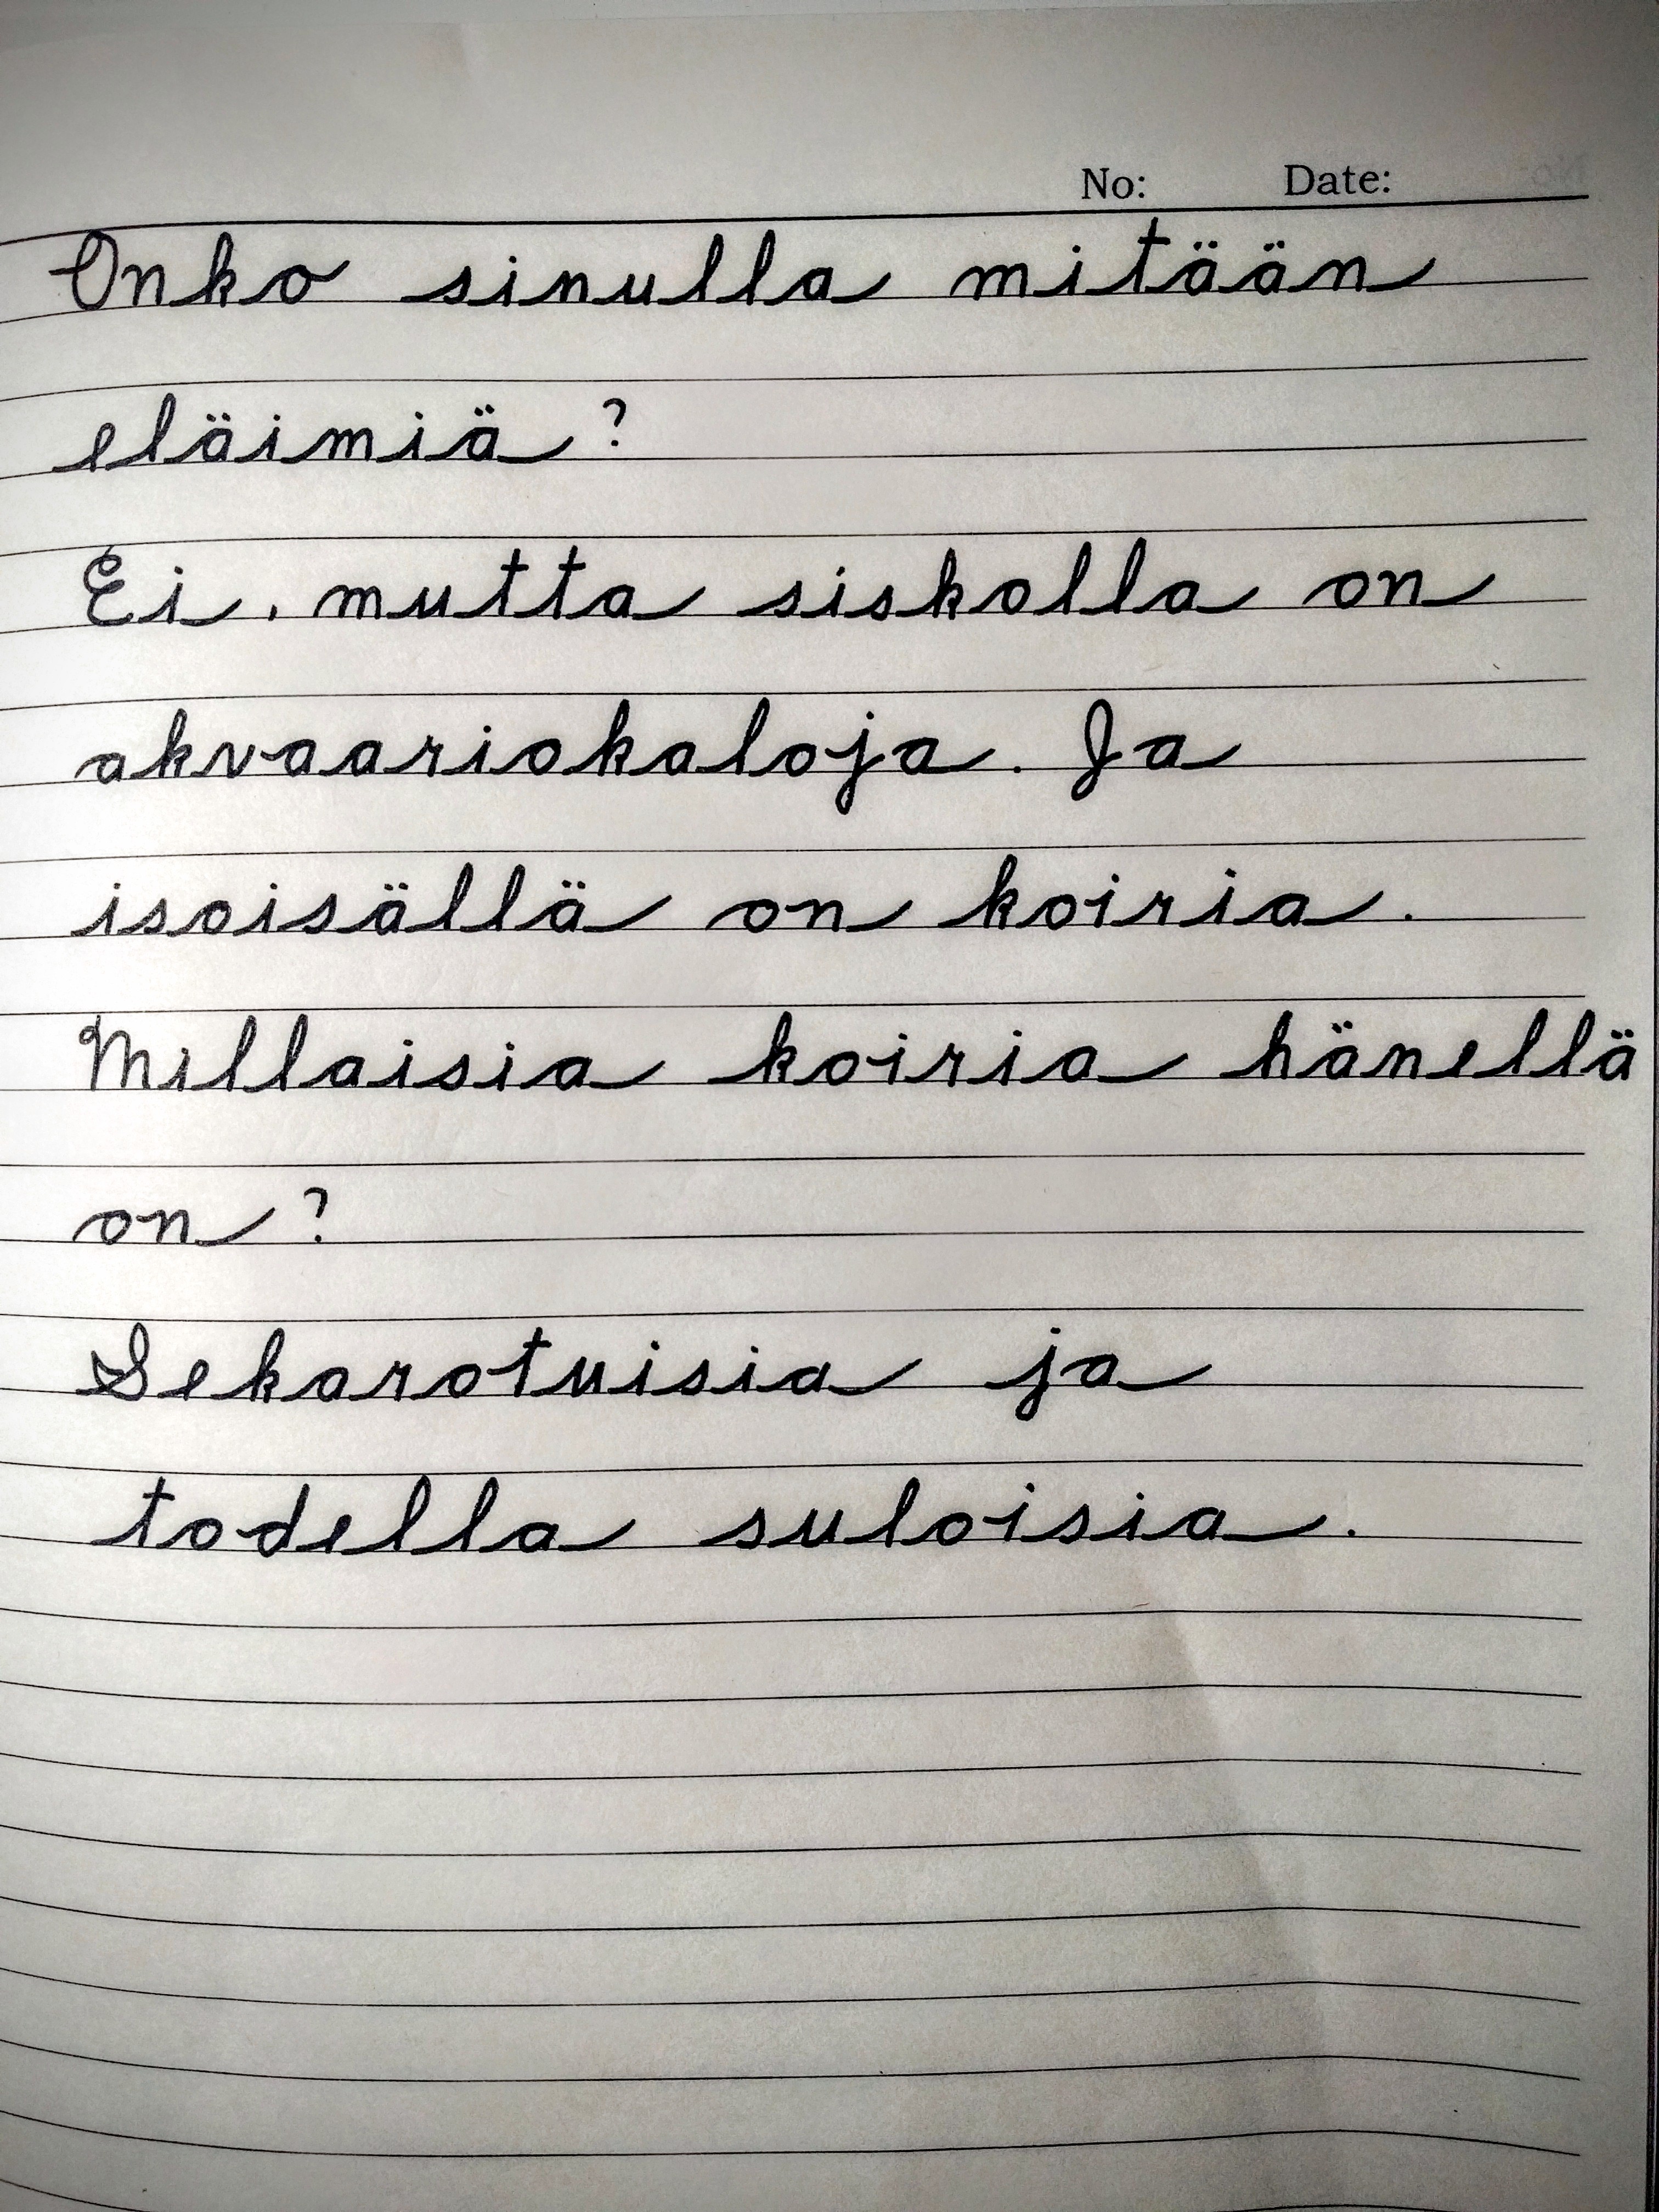 No: Date:
Onko sinulla mitään
eläimiä?
Ei, mutta siskolla on
akvaariokaloja. Ja
isoisällä on koiria.
Millaisia koiria hänellä
on?
Sekarotuisia ja
todella suloisia.